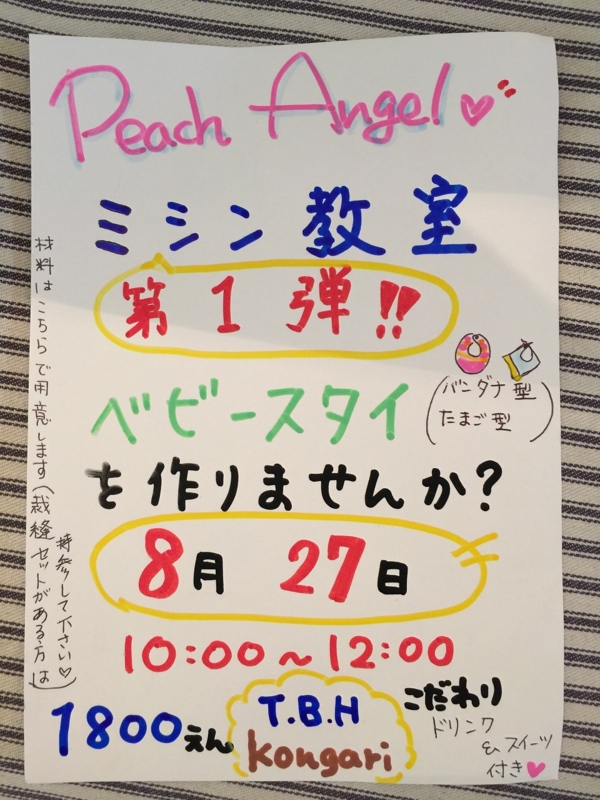 Peach Angel♡
ミシン教室
第1弾!!
ベビースタイ
(バンダナ型
たまご型)
を作りませんか?
8月 27日
10:00~12:00
1800えん
T.B.H
kongari
こだわり
ドリンク
&スイーツ
付き♥
材料はこちらで用意します(裁縫セットがある方は
持参して下さい♡)